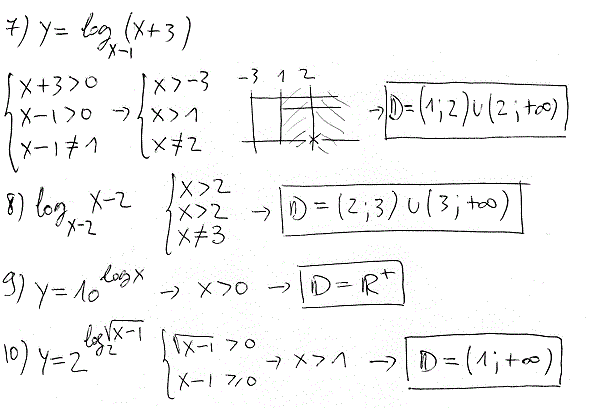 7) y = log_{x-1} (x+3)
{ x+3>0 → { x>-3   -3 1 2
{ x-1>0 → { x>1 → D=(1;2)∪(2;+∞)
{ x-1≠1   { x≠2   x
8) log_{x-2} x-2   { x>2
{ x>2 → D=(2;3)∪(3;+∞)
{ x≠3
9) y=10^{log x} → x>0 → D=R⁺
10) y=2^{log_2 √(x-1)}   { √(x-1) >0
{ x-1 ≥0 → x>1 → D=(1;+∞)